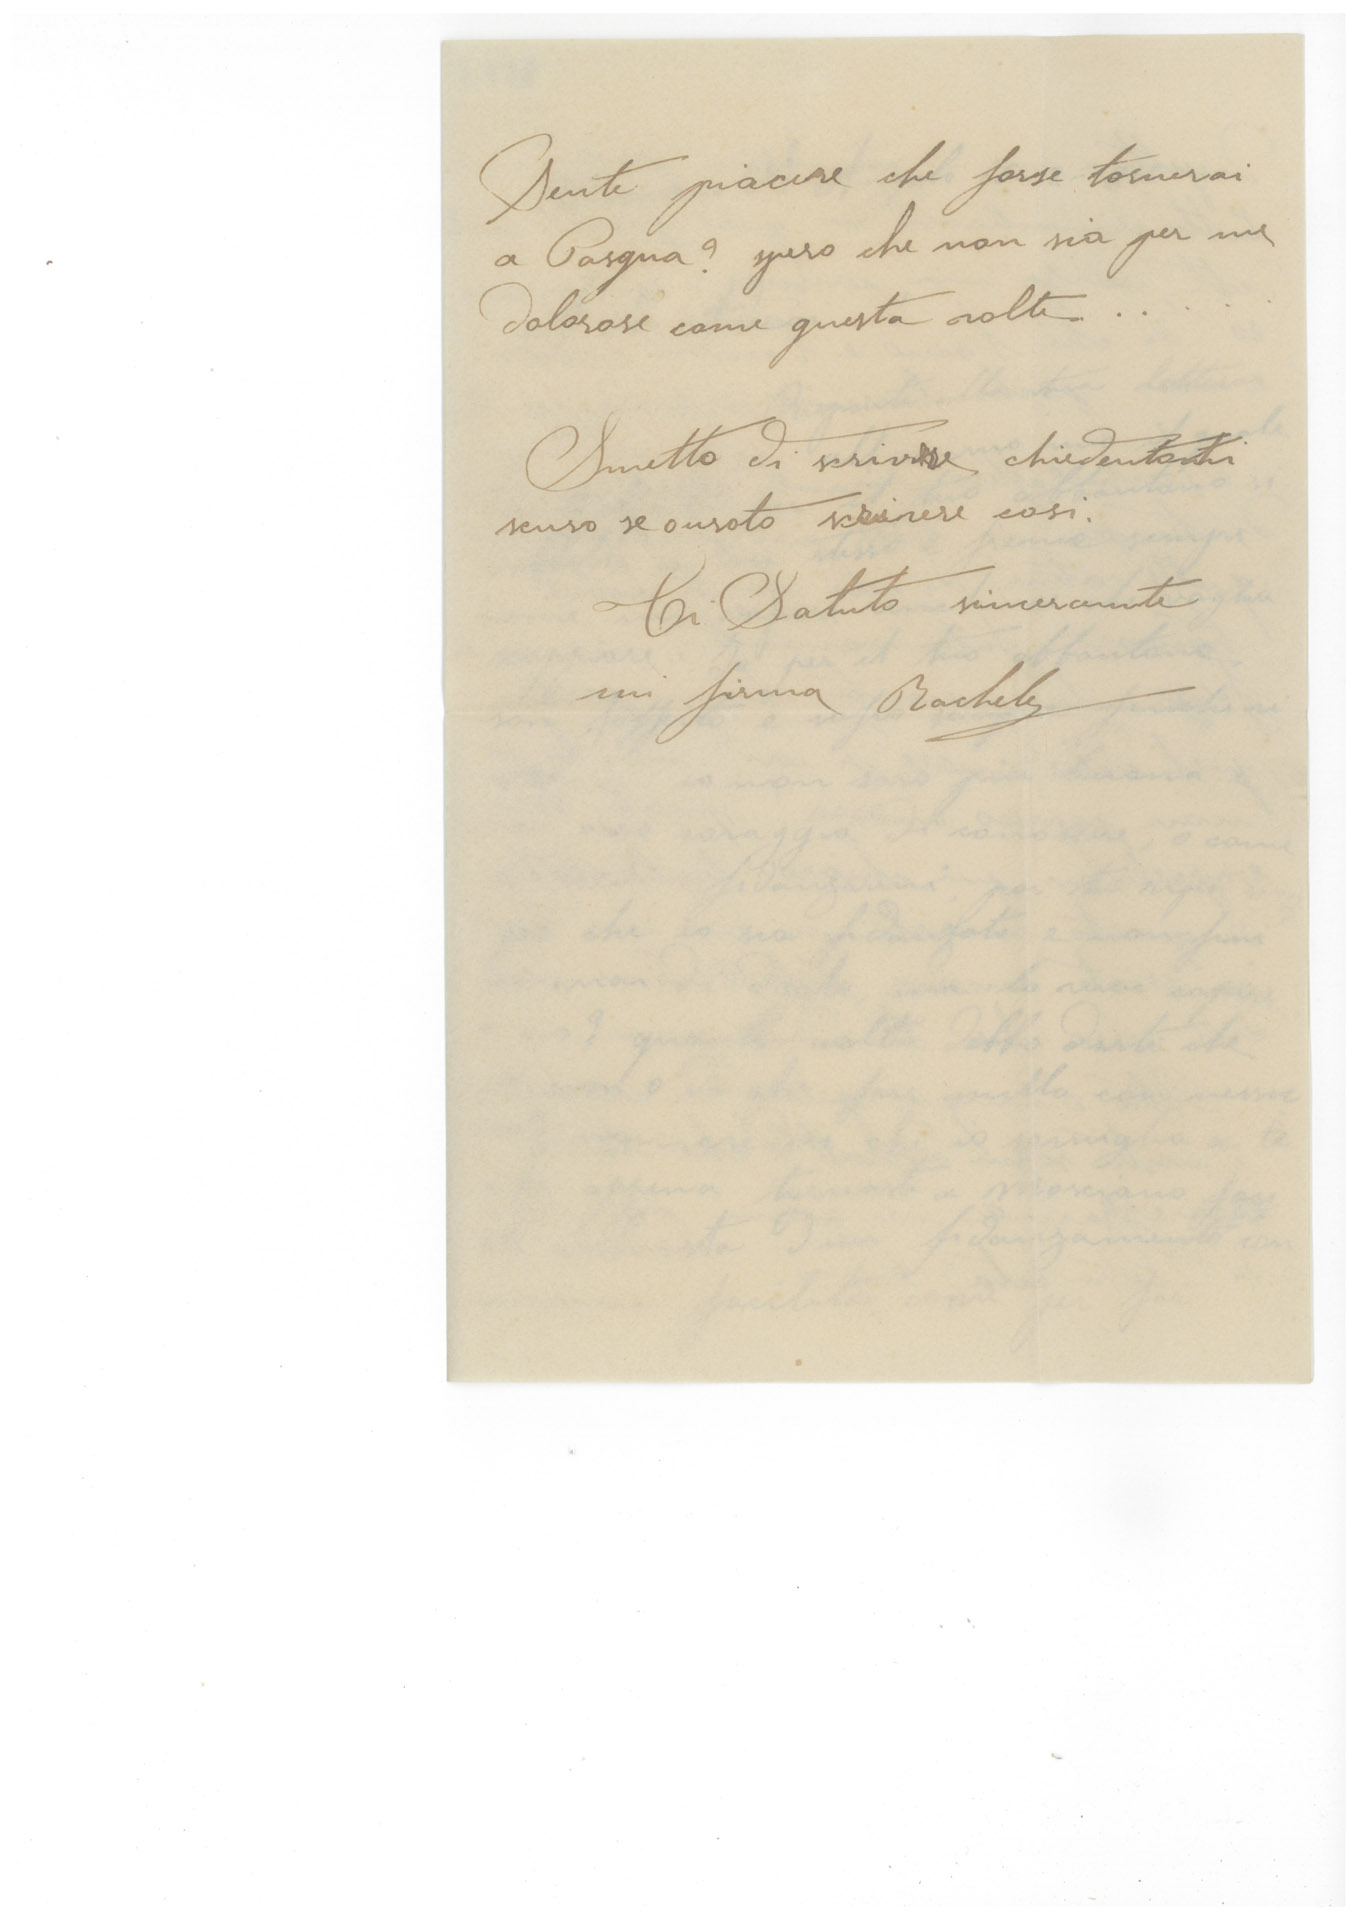 Sente piacere che forse tornerai
a Pasqua? spero che non sia per me
dolorose come questa volte. . . . . .
Smetto di scrivere chiedentoti
scuso se ousoto scrivere cosi.
Ti Saluto sinceramte
mi firma Rachele